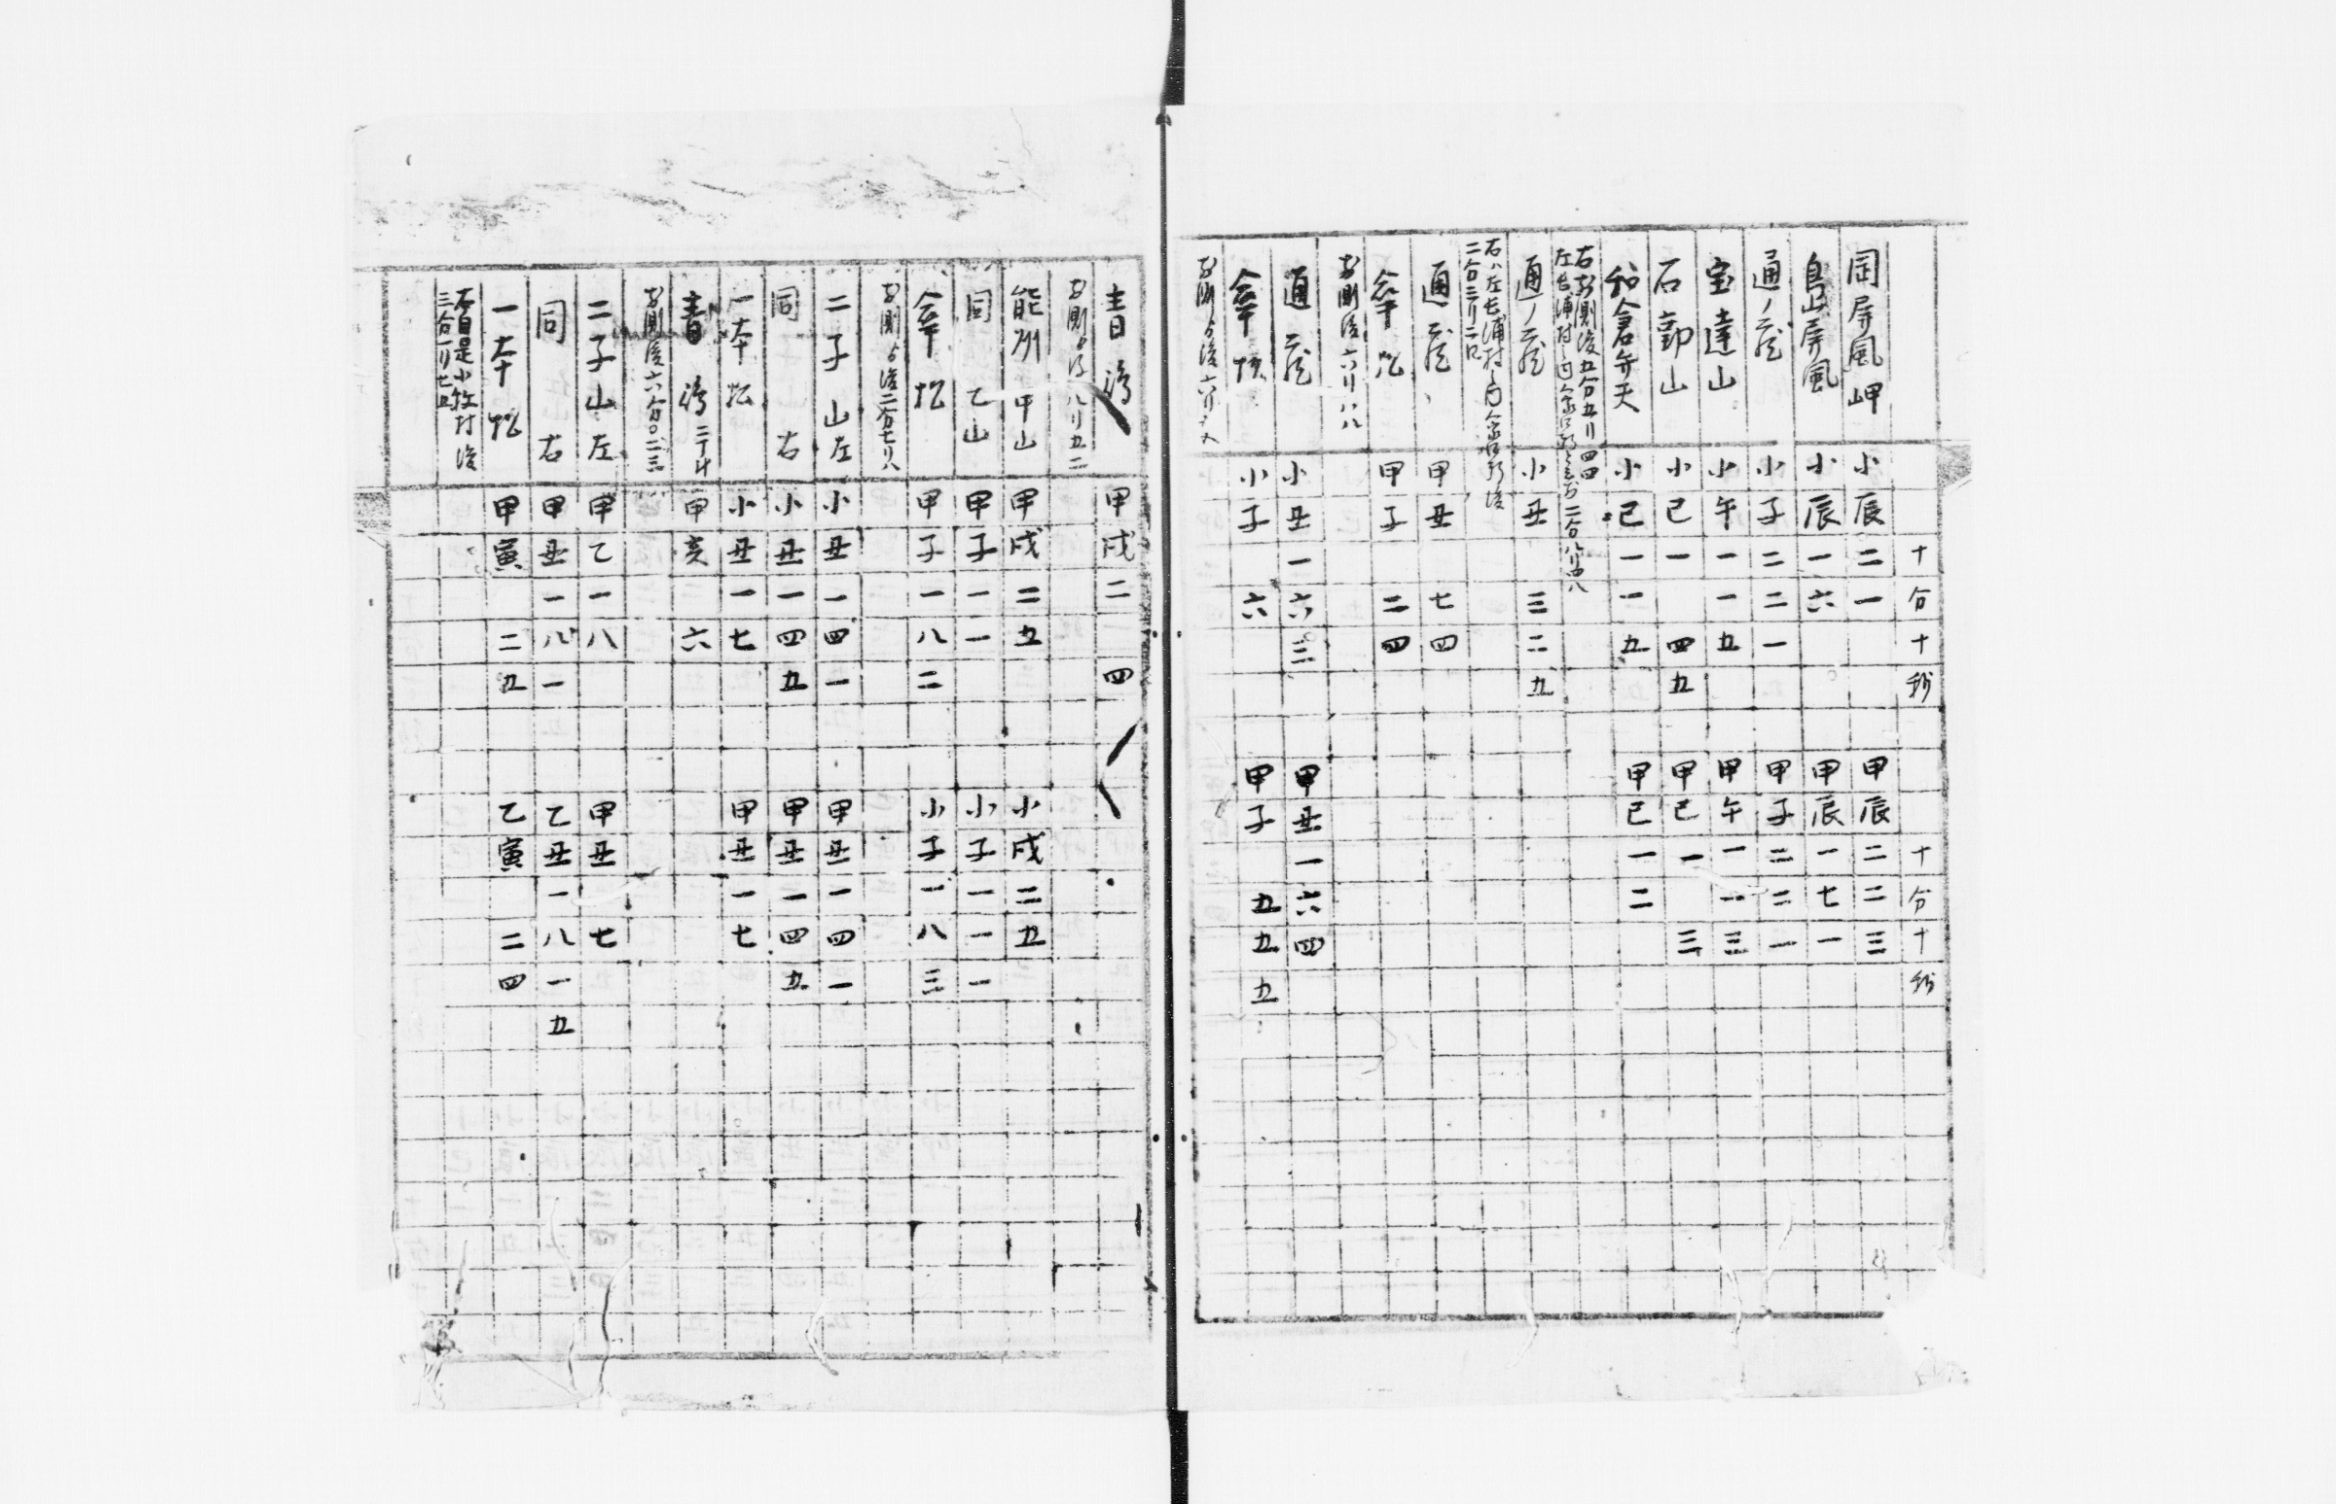 十分十秒 十分十秒
同屏風岬 小辰二一 甲辰二二三
島山屏風 小辰一六 甲辰一七一
通ノ蔵 小子二二一 甲子二二一
宝達山 小午一一五 甲午一一三
石動山 小巳一 四五 甲巳一 三
和倉弁天 小巳一一五 甲巳一二
右初測後五分五リ四四
左長浦村 二合八リ四八
通ノ蔵 小丑 三二五
右ハ左長浦村
二合二リ二
通蔵 甲丑 七四
傘松 甲子 二四
初測後六リ八八
通蔵 小丑一六三 甲丑一六四
傘松 小子 六 甲子 五五五
初測ゟ後六リ
青島 甲戌二 四
初測ゟ後八リ五二
能州甲山 甲戌二五 小戌二五
同乙山 甲子一一 小子一一一
傘松 甲子一八二 小子一八三
初測ゟ後二分七リ八
二子山左 小丑一四一 甲丑一四一
同 右 小丑一四五 甲丑一四五
一本松 小丑一七 甲丑一七
青島 甲亥 六
初測後六分〇二三
二子山左 甲乙一八 甲丑 七
同 右 甲丑一八一 乙丑一八一五
一本松 甲寅 二五 乙寅 二四
是小牧村後
三合一リ七五